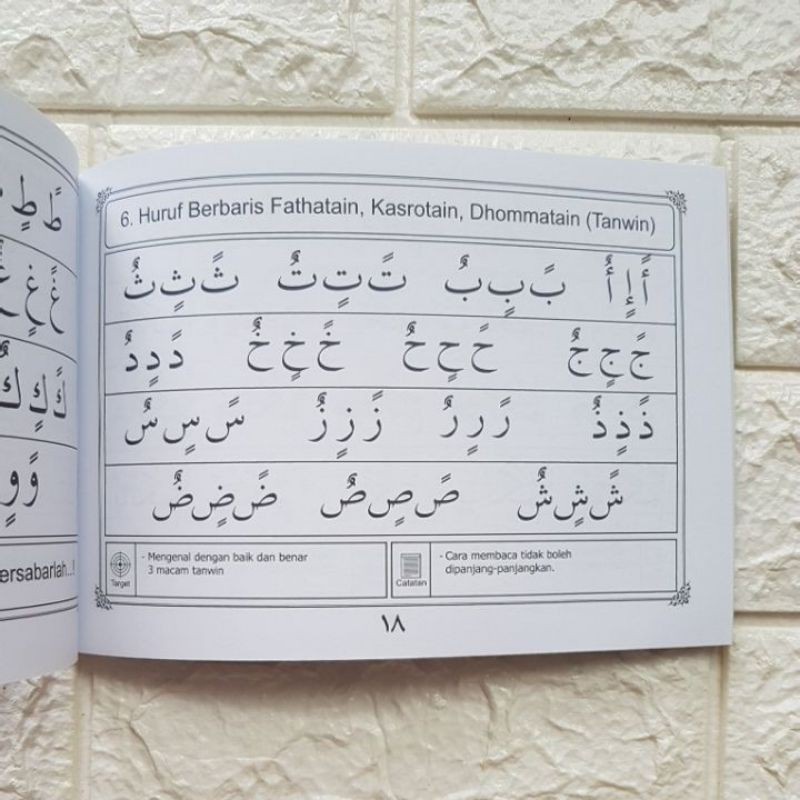 6. Huruf Berbaris Fathatain, Kasrotain, Dhommatain (Tanwin)
أً إٍ أٌ بً بٍ بٌ تً تٍ تٌ ثً ثٍ ثٌ
جً جٍ جٌ حً حٍ حٌ خً خٍ خٌ دً دٍ دٌ
ذً ذٍ ذٌ رً رٍ رٌ زً زٍ زٌ سً سٍ سٌ
شً شٍ شٌ صً صٍ صٌ ضً ضٍ ضٌ
Target
- Mengenal dengan baik dan benar
3 macam tanwin
Catatan
- Cara membaca tidak boleh
dipanjang-panjangkan.
١٨
طً طٍ
غً غٍ
كً كٍ كٌ
وً وٍ
ersabarlah..!